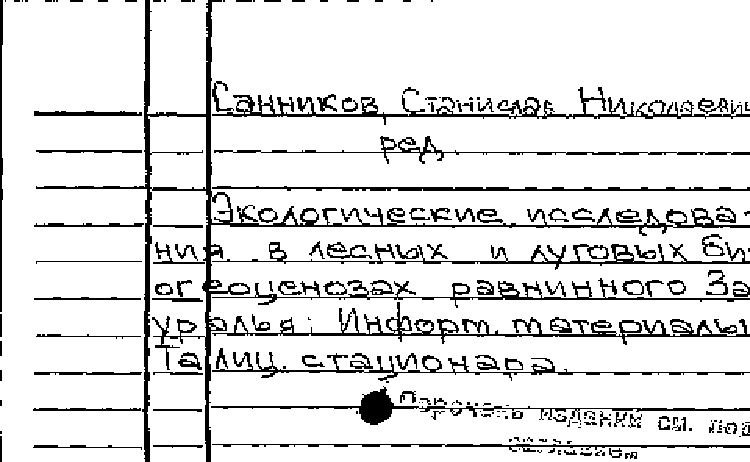 Санников, Станислав Николаеви
ред.
Экологические исследова-
ния в лесных и луговых би-
огеоценозах равнинного За-
уралья: Информ. материалы
Талиц. стационара.
Перечень изданий см. под
заглавием